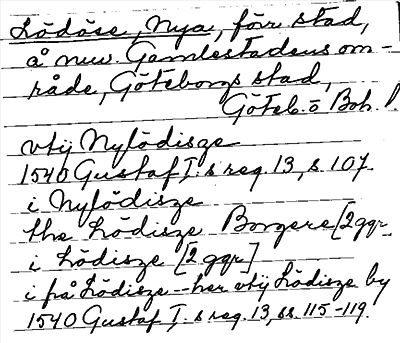 Lödöse, Nya, förr stad,
å nuv. Gamlestadens om-
råde, Göteborgs stad,
Göteb. o Boh. l
vtij Nylödisze
1540 Gustaf I:s reg. 13, s. 107.
i Nylödisze
the Lödisze Borgere [2 ggr
i Lödisze [2 ggr]
i frå Lödisze -- her vtij Lödisze by
1540 Gustaf I:s reg. 13, ss. 115-119.